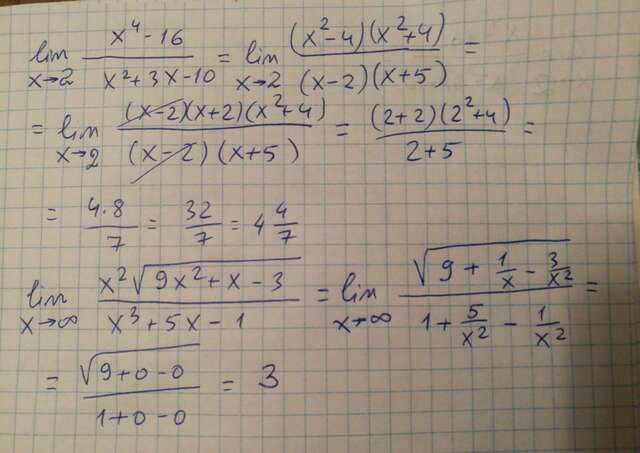 lim x→2 (x⁴-16)/(x²+3x-10) = lim x→2 ((x²-4)(x²+4))/((x-2)(x+5)) =
= lim x→2 ((x-2)(x+2)(x²+4))/((x-2)(x+5)) = ((2+2)(2²+4))/(2+5) =
= (4·8)/7 = 32/7 = 4 4/7
lim x→∞ (x²√(9x²+x-3))/(x³+5x-1) = lim x→∞ √(9+1/x-3/x²)/(1+5/x²-1/x²) =
= √(9+0-0)/(1+0-0) = 3